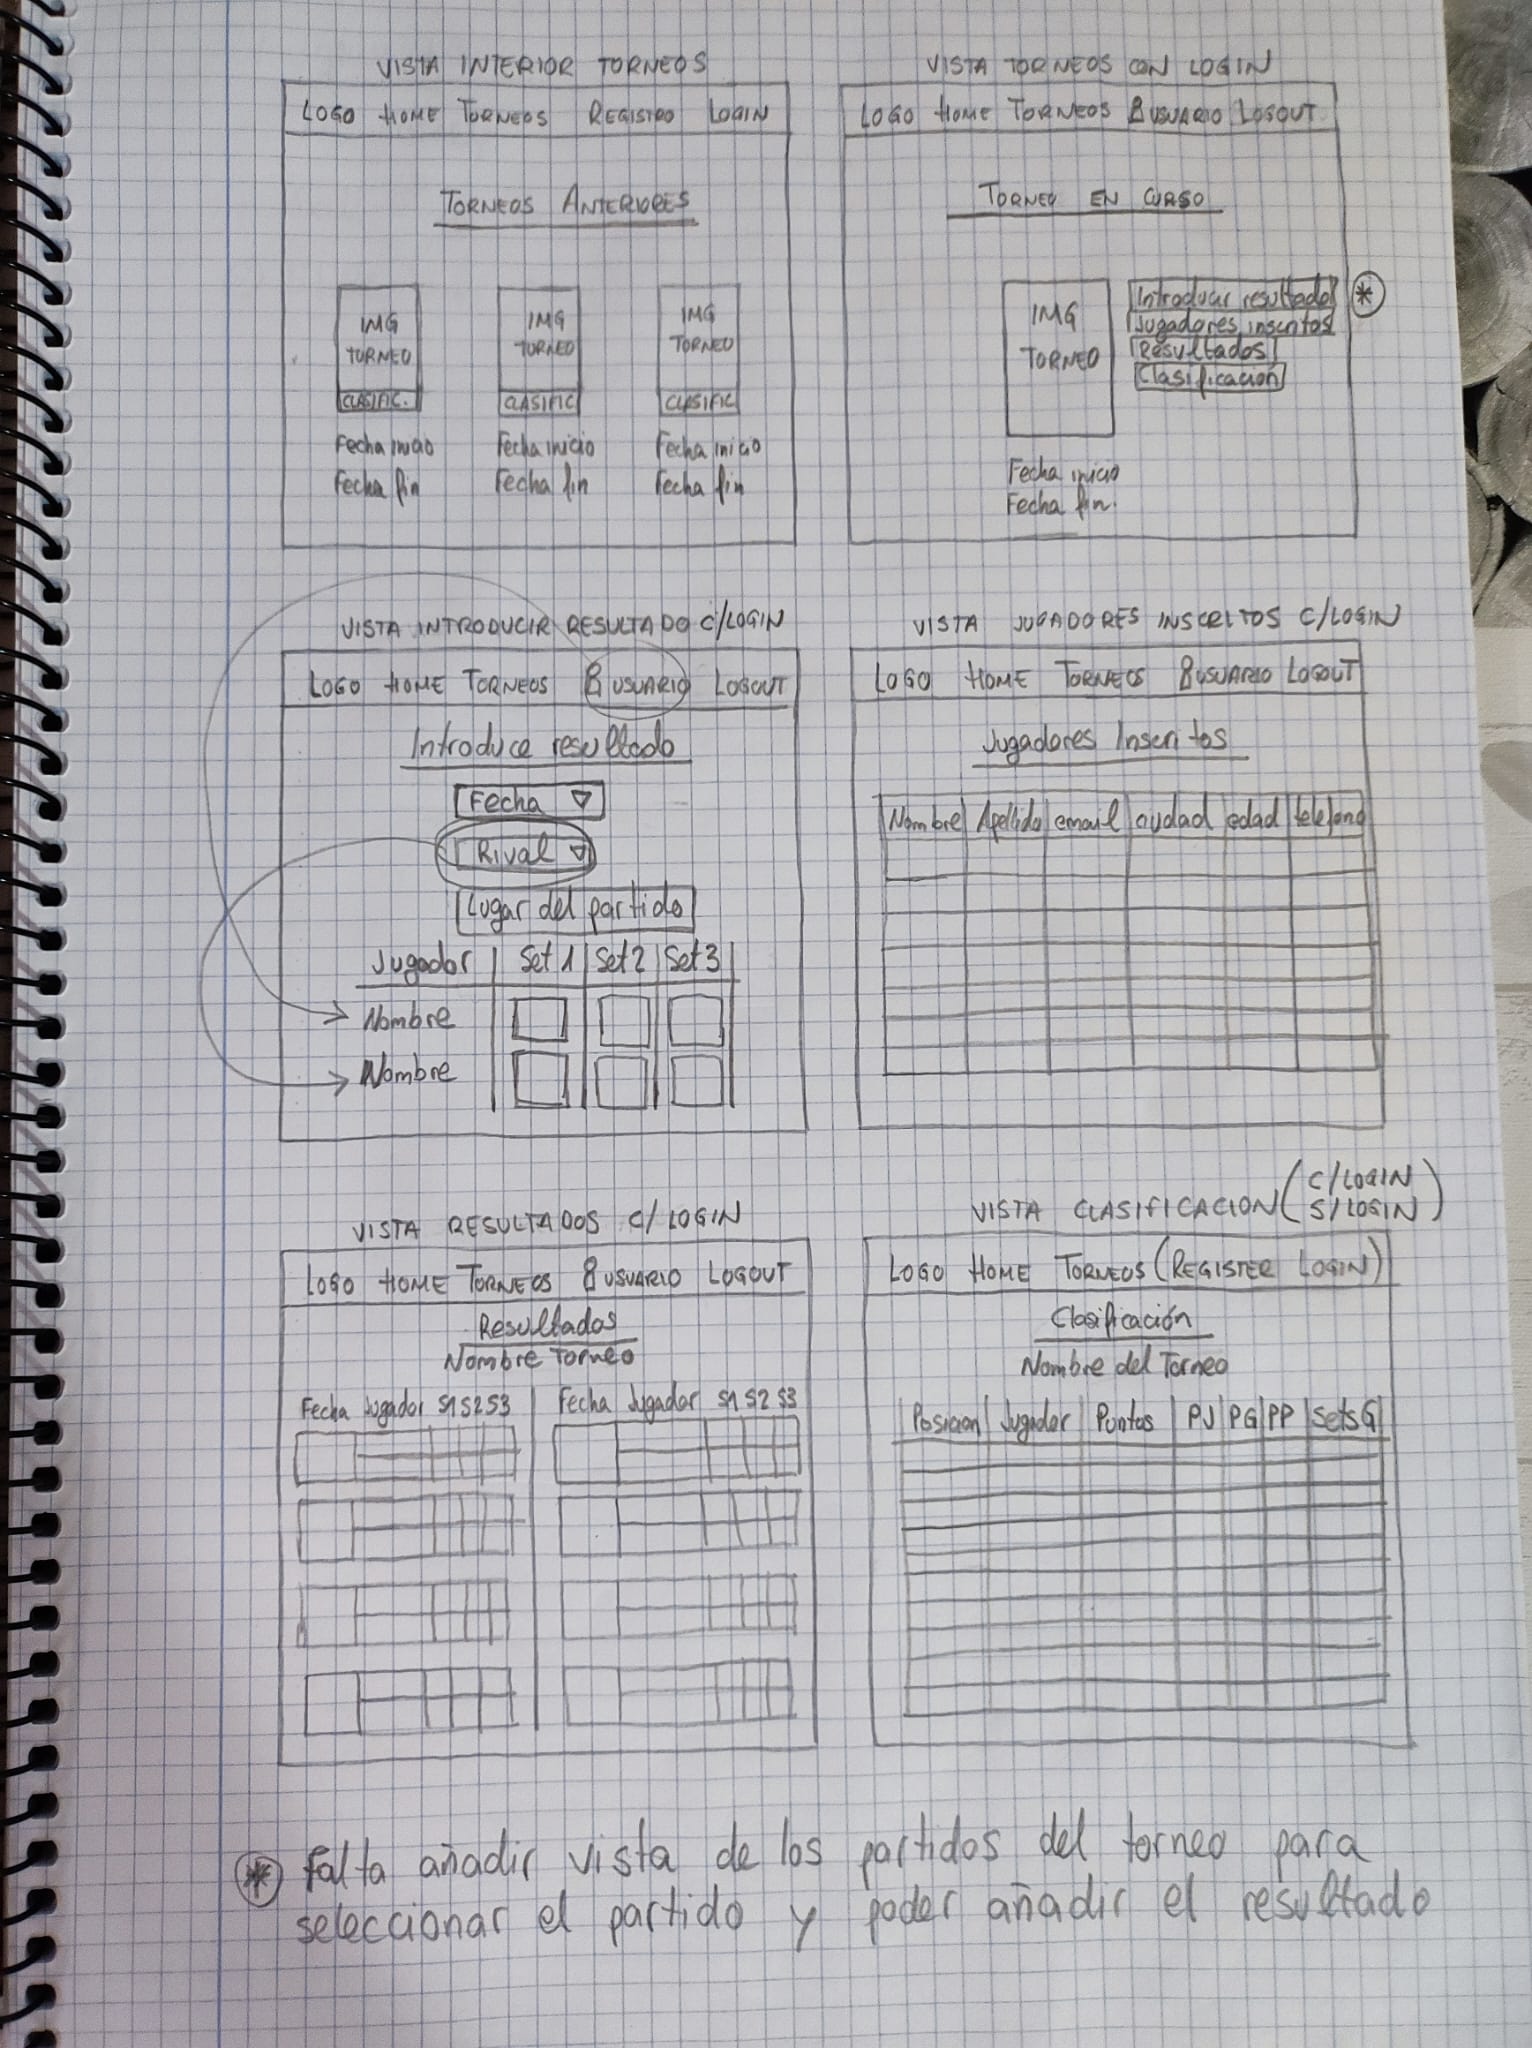 VISTA INTERIOR TORNEOS
LOGO HOME TORNEOS REGISTRO LOGIN
TORNEOS ANTERIORES
IMG TORNEO CLASIFIC.
Fecha inicio
Fecha fin
IMG TORNEO CLASIFIC
Fecha inicio
Fecha fin
IMG TORNEO CLASIFIC
Fecha inicio
Fecha fin
VISTA TORNEOS CON LOGIN
LOGO HOME TORNEOS USUARIO LOGOUT
TORNEO EN CURSO
IMG
TORNEO
Introducir resultado *
Jugadores inscritos
Resultados
Clasificación
Fecha inicio
Fecha fin.
VISTA INTRODUCIR RESULTADO C/LOGIN
LOGO HOME TORNEOS USUARIO LOGOUT
Introduce resultado
Fecha
Rival
Lugar del partido
Jugador Set 1 Set 2 Set 3
Nombre
Nombre
VISTA JUGADORES INSCRITOS C/LOGIN
LOGO HOME TORNEOS USUARIO LOGOUT
Jugadores Inscritos
Nombre Apellido email ciudad edad telefono
VISTA RESULTADOS C/LOGIN
LOGO HOME TORNEOS USUARIO LOGOUT
Resultados
Nombre Torneo
Fecha Jugador S1 S2 S3 Fecha Jugador S1 S2 S3
VISTA CLASIFICACION (C/LOGIN S/LOGIN)
LOGO HOME TORNEOS (REGISTER LOGIN)
Clasificación
Nombre del Torneo
Posicion Jugador Puntos PJ PG PP Sets G
* Falta añadir vista de los partidos del torneo para
seleccionar el partido y poder añadir el resultado